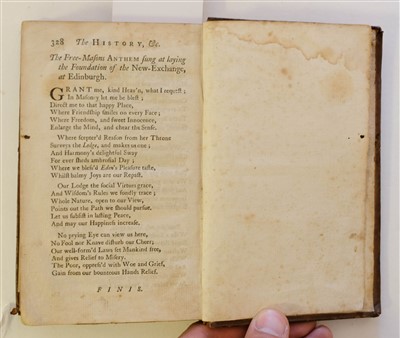 328 The HISTORY, &c.
The Free-Masons ANTHEM sung at laying
the Foundation of the New-Exchange,
at Edinburgh.
GRANT me, kind Heav'n, what I request;
In Masonry let me be blest;
Direct me to that happy Place,
Where Friendship smiles on every Face;
Where Freedom, and sweet Innocence,
Enlarge the Mind, and chear the Sense.
Where scepter'd Reason from her Throne
Surveys the Lodge, and makes us one;
And Harmony's delightful Sway
For ever sheds ambrosial Day;
Where we bless'd Eden's Pleasure taste,
Whilst balmy Joys are our Repast.
Our Lodge the social Virtues grace,
And Wisdom's Rules we fondly trace;
Whole Nature, open to our View,
Points out the Path we should pursue.
Let us subsist in lasting Peace,
And may our Happiness increase.
No prying Eye can view us here,
No Fool nor Knave disturb our Cheer;
Our well-form'd Laws set Mankind free,
And gives Relief to Misery.
The Poor, oppress'd with Woe and Grief,
Gain from our bounteous Hands Relief.
FINIS.